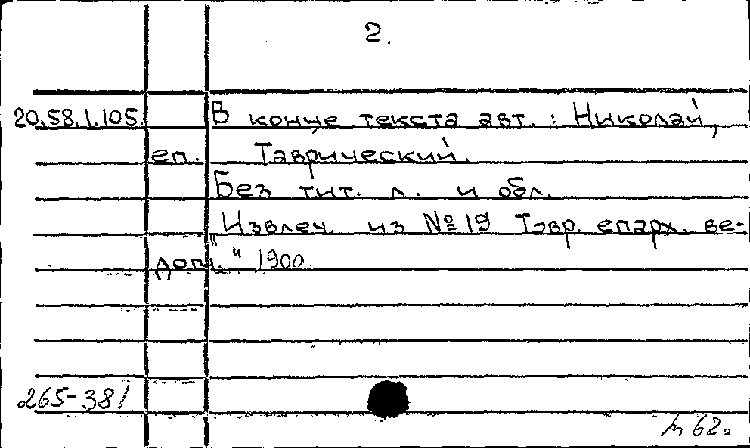 2.
20.58.1.105. В конце текста авт.: Николай,
еп. Таврический.
Без тит. л. и обл.
Извлеч. из №19 "Тавр. епарх. ве-
дом." 1900
265-381
п 62.